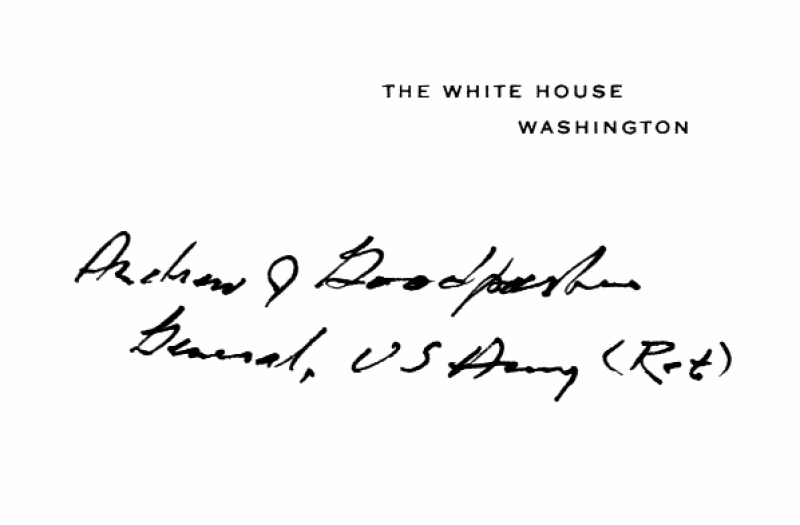 THE WHITE HOUSE
WASHINGTON
Andrew J Goodpaster
General, US Army (Ret)